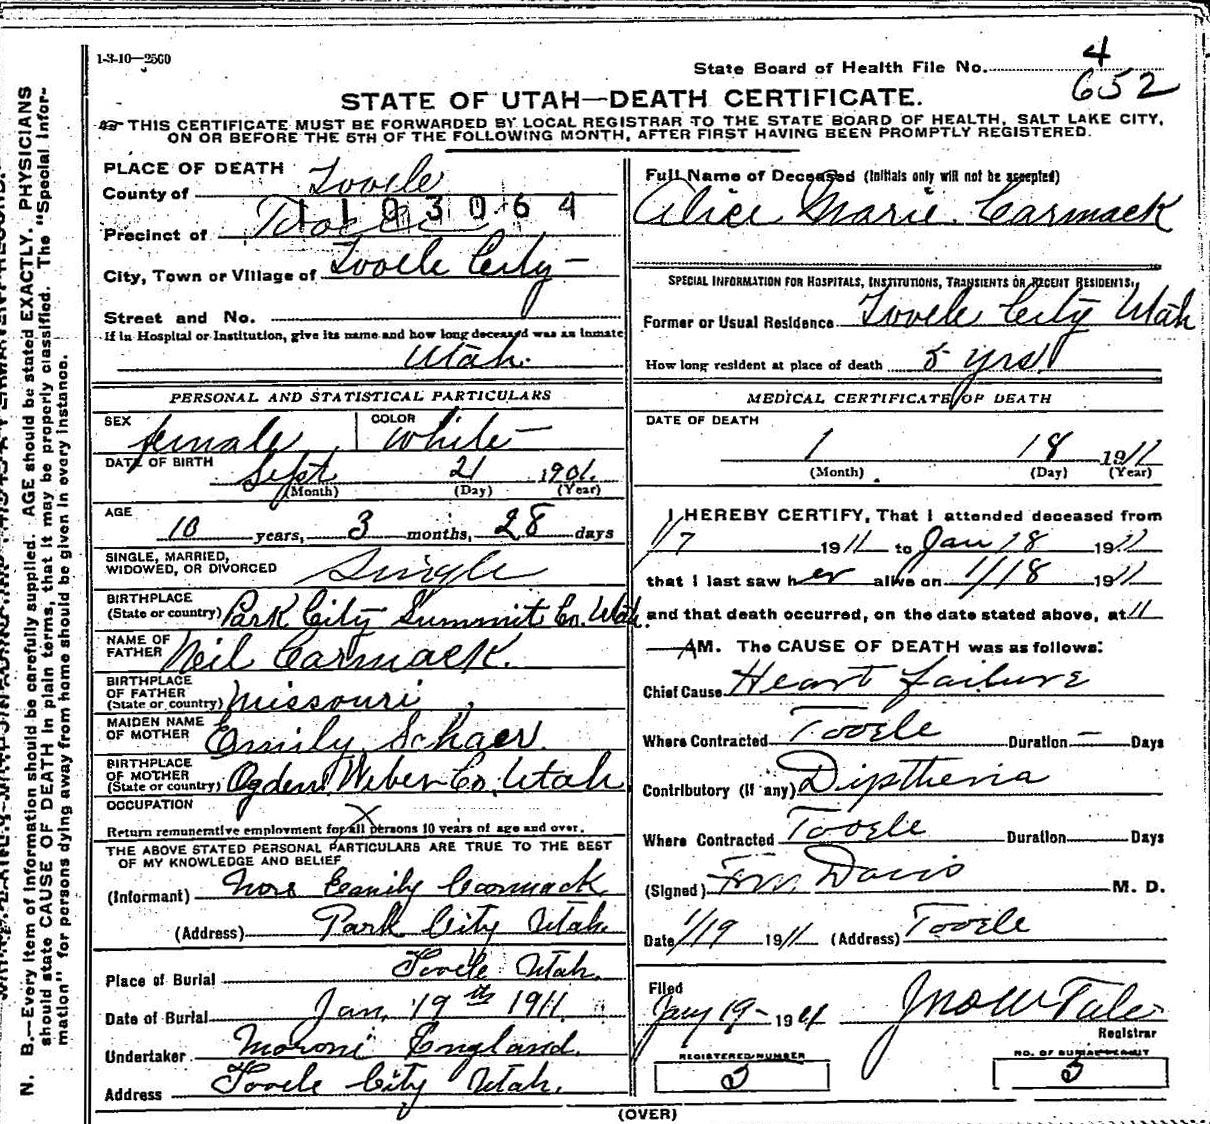 1-3-10—2560
State Board of Health File No. 4
652
STATE OF UTAH—DEATH CERTIFICATE.
THIS CERTIFICATE MUST BE FORWARDED BY LOCAL REGISTRAR TO THE STATE BOARD OF HEALTH, SALT LAKE CITY,
ON OR BEFORE THE 5TH OF THE FOLLOWING MONTH, AFTER FIRST HAVING BEEN PROMPTLY REGISTERED.
PLACE OF DEATH
County of Tooele
1103064
Precinct of Tooele
City, Town or Village of Tooele City
Street and No.
If in Hospital or Institution, give its name and how long deceased was an inmate
Utah.
PERSONAL AND STATISTICAL PARTICULARS
SEX female COLOR White
DATE OF BIRTH Sept 21 1901.
(Month) (Day) (Year)
AGE
10 years, 3 months, 28 days
SINGLE, MARRIED,
WIDOWED, OR DIVORCED Single
BIRTHPLACE
(State or country) Park City Summit Co. Utah
NAME OF
FATHER Neil Carmack.
BIRTHPLACE
OF FATHER
(State or country) Missouri
MAIDEN NAME
OF MOTHER Emily Schaer.
BIRTHPLACE
OF MOTHER
(State or country) Ogden Weber Co. Utah
OCCUPATION X
Return remunerative employment for all persons 10 years of age and over.
THE ABOVE STATED PERSONAL PARTICULARS ARE TRUE TO THE BEST
OF MY KNOWLEDGE AND BELIEF
(Informant) Mrs Emily Carmack
(Address) Park City Utah.
Place of Burial Tooele Utah.
Date of Burial Jan. 19th 1911.
Undertaker Moroni England.
Address Tooele City Utah.
Full Name of Deceased (Initials only will not be accepted)
Alice Marie Carmack
SPECIAL INFORMATION FOR HOSPITALS, INSTITUTIONS, TRANSIENTS OR RECENT RESIDENTS.
Former or Usual Residence Tooele City Utah
How long resident at place of death 5 yrs.
MEDICAL CERTIFICATE OF DEATH
DATE OF DEATH
1 18 1911
(Month) (Day) (Year)
I HEREBY CERTIFY, That I attended deceased from
1/7 1911 to Jan 18 1911
that I last saw her alive on 1/18 1911
and that death occurred, on the date stated above, at 11
AM. The CAUSE OF DEATH was as follows:
Chief Cause Heart failure
Where Contracted Tooele Duration — Days
Contributory (if any) Diptheria
Where Contracted Tooele Duration Days
(Signed) Davis M. D.
Date 1/19 1911 (Address) Tooele
Filed
Jany 19 - 1911
Registrar
REGISTERED NUMBER
5
NO. OF BURIAL PERMIT
5
(OVER)
N. B.—Every item of information should be carefully supplied. AGE should be stated EXACTLY. PHYSICIANS
should state CAUSE OF DEATH in plain terms, that it may be properly classified. The "Special Infor-
mation" for persons dying away from home should be given in every instance.